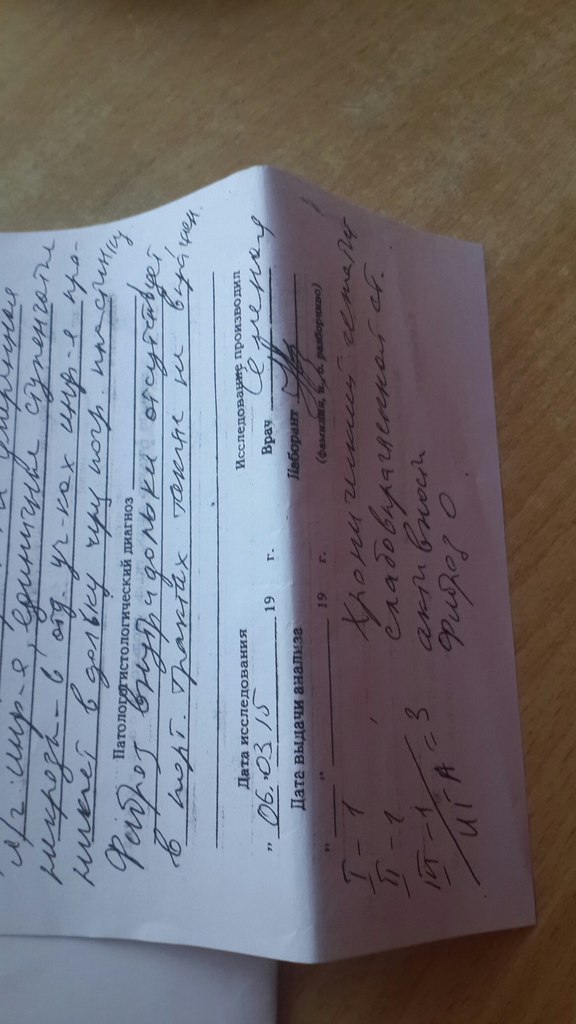 л/г инф-я, единичные ступенчатые
некрозы - в отд. уч-ках инф-я про-
никает в дольку чрез погр. пластинку
Патологогистологический диагноз
Фиброз внутри дольки отсутствует
в порт. трактах также не выражен.
Дата исследования
Исследование производил
„ 06.03.15 19 г.
Врач
Дата выдачи анализа
Лаборант
„ „ 19 г.
(фамилия, и., о. разборчиво)
I - 1
Хронический гепатит
II - 1
слабовыраженной ст.
III - 1
активности
ИГА = 3
Фиброз 0